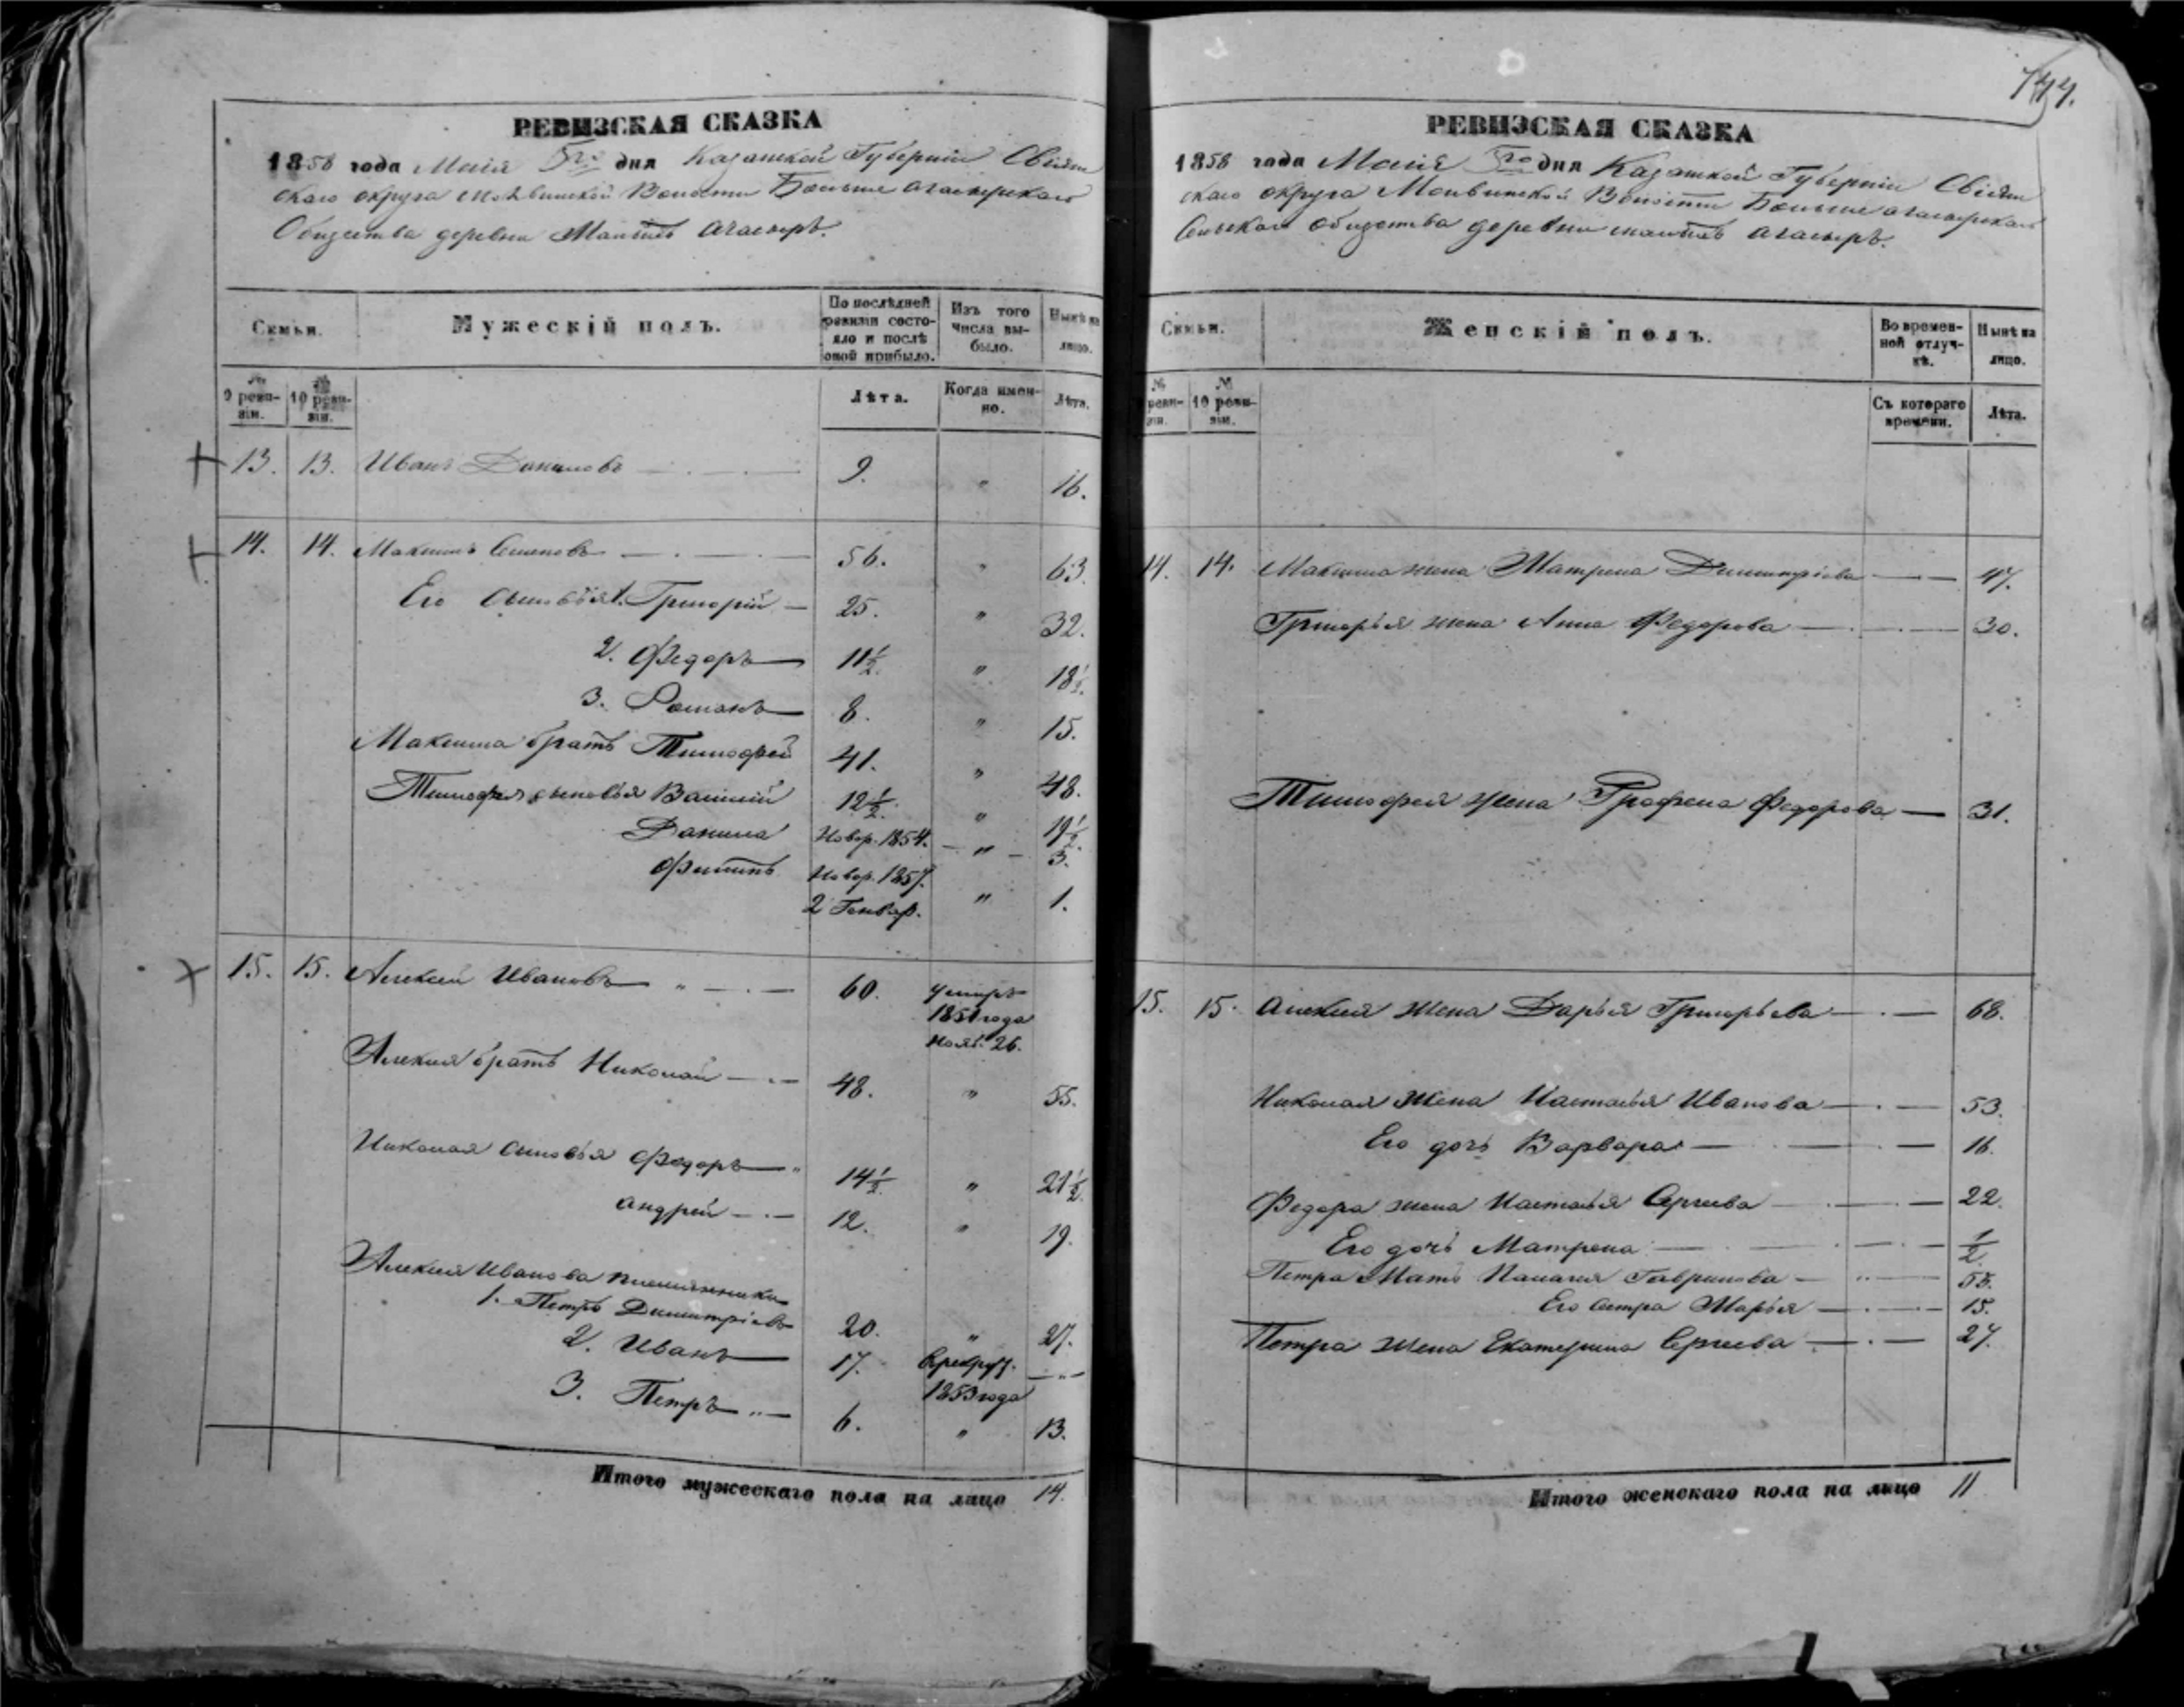 РЕВИЗСКАЯ СКАЗКА
1858 года Маія 5го дня Казанской Губерніи Свіяж
скаго округа Волости Больше
Общества деревни
Семьи.
Мужескій полъ.
По послѣдней ревизіи состояло и послѣ оной прибыло.
Изъ того числа выбыло.
Нынѣ на лицо.
№ 9 ревизіи.
№ 10 ревизіи.
Лѣта.
Когда именно.
Лѣта.
13. 13. Иванъ Даниловъ 9. " 16.
14. 14. Максимъ Семеновъ 56. " 63.
Его сыновья 1. Григорій 25. " 32.
2. Федоръ 11½. " 18½.
3. Романъ 8. " 15.
Максима братъ Тимофей 41. " 48.
Тимофея сыновья Василій 12½. " 19½.
Данила Новор. 1854. " 3.
Филипъ Новор. 1857. " 1.
2 Генвар.
15. 15. Алексей Ивановъ " 60. умеръ
1851 года
Нояб. 26.
Алексея братъ Николай 48. " 55.
Николая сыновья Федоръ " 14½. " 21½.
Андрей 12. " 19.
Алексея Иванова племянники
1. Петръ Димитріевъ 20. " 27.
2. Иванъ 17. В рекрут. "
1853 года
3. Петръ " 6. " 13.
Итого мужескаго пола на лицо 14.
144.
РЕВИЗСКАЯ СКАЗКА
1858 года Маія 5го дня Казанской Губерніи Свіяж
скаго округа Волости Больше
Сельскаго общества деревни
Семьи.
Женскій полъ.
Во временной отлучкѣ.
Нынѣ на лицо.
№ ревизіи.
№ 10 ревизіи.
Съ котораго времени.
Лѣта.
14. 14. Максима жена Матрена Димитріева 47.
Григорья жена Анна Федорова 30.
Тимофея жена Графена Федорова 31.
15. 15. Алексея жена Дарья Григорьева 68.
Николая жена Настасья Иванова 53.
Его дочь Варвара 16.
Федора жена Настасья Сергеева 22.
Его дочь Матрена ½
Петра Мать Палагея Гаврилова " 55.
Его сестра Марья 15.
Петра жена Екатерина Сергеева 27.
Итого женскаго пола на лицо 11